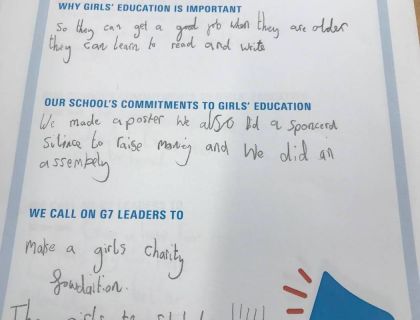 WHY GIRLS' EDUCATION IS IMPORTANT
So they can get a good job when they are older
they can learn to read and write
OUR SCHOOL'S COMMITMENTS TO GIRLS' EDUCATION
We made a poster We also did a sponcerd
Silince to raise money and We did an
assembely
WE CALL ON G7 LEADERS TO
make a girls charity
foundaition.
The girls to